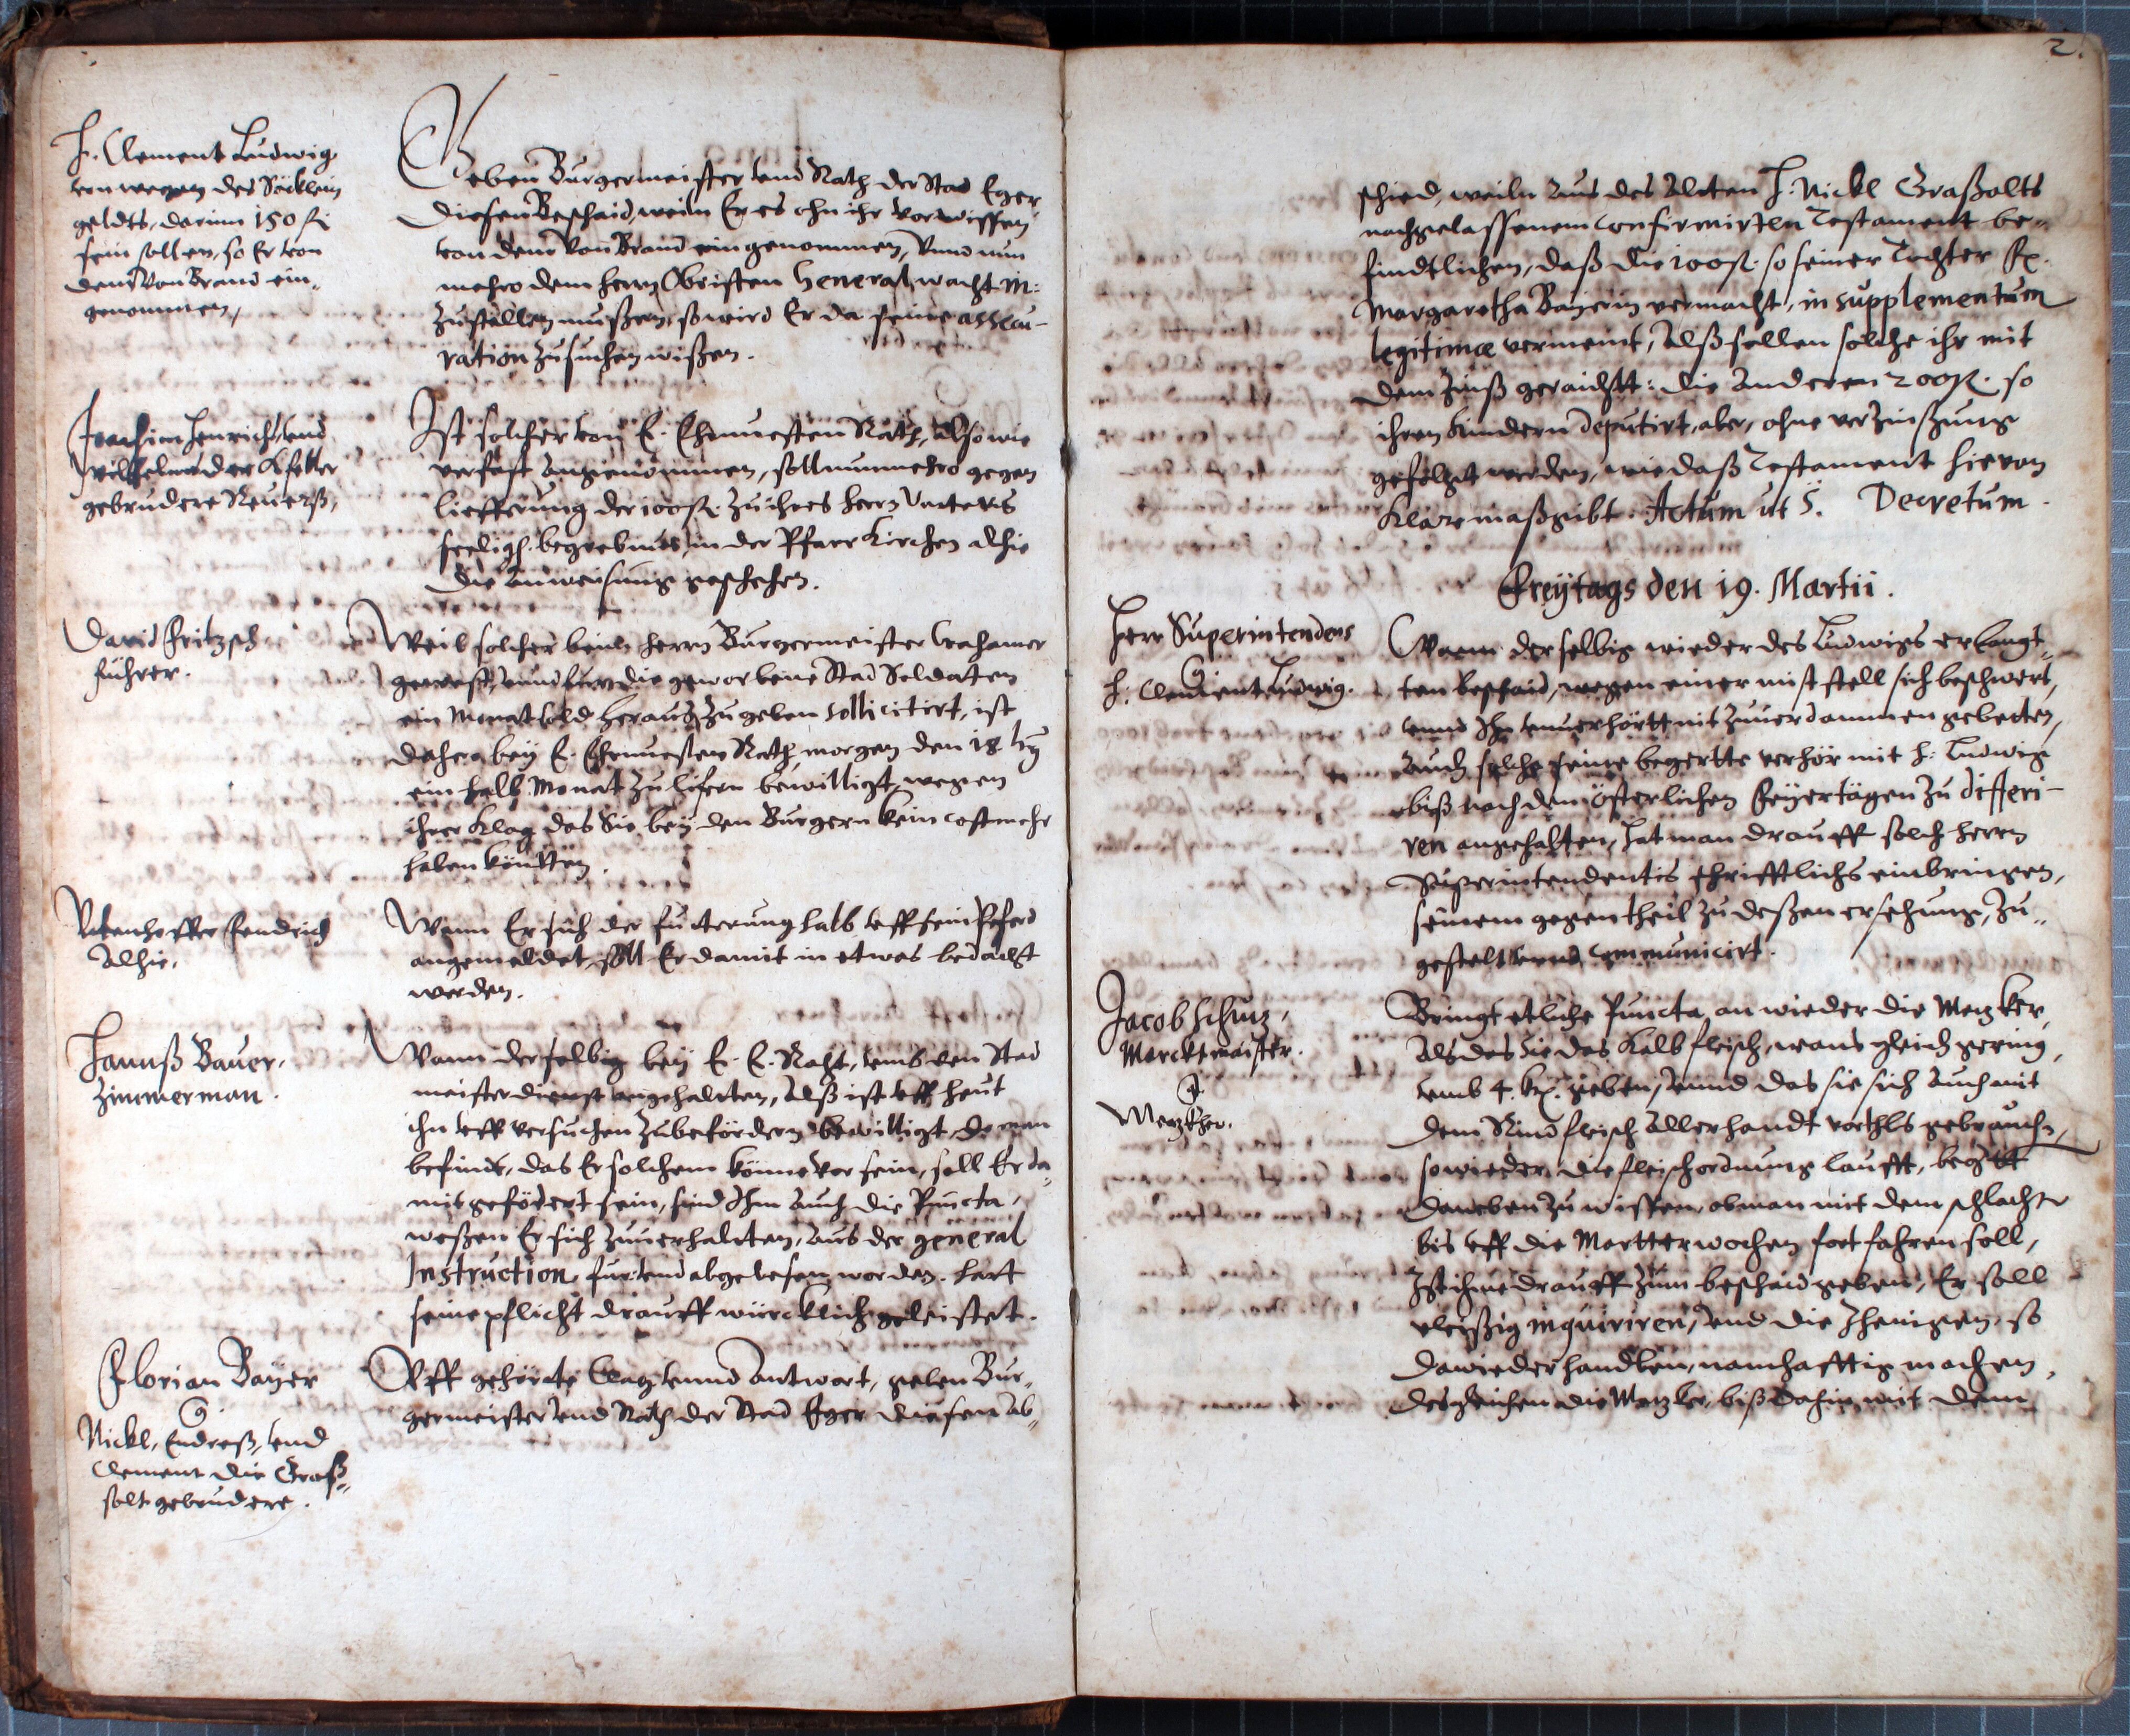 H. Clement Ludwig
von wegen des Säcklein
geldts, darinn 150 fl
sein sollen, so Er von
dem Von Brand ein-
genommen,
Geben Burgermeister vnd Rath der Stad Eger
diesen Beschaid, weiln Er es ohn ihr Vorwissen
von dem Von Brand eingenommen, Vnnd nun
mehro dem Herrn Obristen General wacht M:
zustellen mußen, so wird Er da seine assecu-
ration zu suchen wißen.
Joachim Henrich, vnd
Wilhelm der
gebrudere
Ist solcher von E. Ehrnuesten Rath, also wie
verfast angenommen, soll nunmehro gegen
liefferung der 100 fl. zu ihres Herrn Vatters
seelig. begrebnus, in der Pfarr Kirchen alhie
die anweisung geschehen.
David Fritzsch
führer.
Weil solcher beim Herrn Burgermeister
gewest, vnnd fur die geworbene Stad Soldaten
ein Monat Sold herauß zu geben sollicitirt, ist
dahero bey E. Ehrnuesten Rath, morgen den 18. hui.
ein halb Monat zu lifern bewilligt, wegen
ihrer Klag das Sie bey den Burgern kein cost mehr
haben köntten.
Fendrich
Alhie.
Wann Er sich der futterung halb vff sein Pferd
angemeldet, soll Er damit in etwas bedacht
werden.
Hannß Bauer,
Zimmerman.
Wann derselbig bey E. E. Raht, vmb den Stad
meister dienst angehaltten, Alß ist vff heut
ihn vff versuchen zubefördern bewilligt, do man
befindt, das Er solchem könne vor sein, soll Er da-
mit gefödert sein, sind Ihm auch die Puncta,
weßen Er sich zuuerhaltten, aus der general
Instruction, fur vnd abgelesen worden. hatt
seine pflicht drauff würcklich geleistet.
Florian Bayer
C
Nickl, Endreß, vnd
Clement die Graß-
solt gebrudere.
Vff gehörte Clag vnnd Antwort, geben Bur-
germeister vnd Rath der Stad Eger diesen ab-
2.
schied, weiln aus des Alten H. Nickl Graßolts
nachgelassenem confirmirten Testament be-
findtlichen, daß die 100 fl. so seiner Tochter Fr.
Margaretha Bayerin vermacht, in supplementum
legitimæ vermeint, Alß sollen solche ihr mit
dem Zinß geraicht: die anderen 200 fl. so
ihren Kindern deputirt, aber, ohne verzinßung
gefolgt werden, wie daß Testament hievon
klare maß gibt. Actum ut S. Decretum.
Freÿtags den 19. Martii.
Herr Superintendens
C
H: Clement Ludwig.
Wann derselbig wieder des Ludwigs erlangt-
ten beschaid, wegen einer miststell sich beschwert,
vnnd Ihn vnuerhört nit zuuerdammen gebetten,
auch solche seine begertte verhör mit H: Ludwig
biß nach den österlichen Feÿertägen zu differi-
ren angehalten, hat man drauff solch Herrn
Superintendentis schrifftlichs einbringen,
seinem gegentheil zu deßen ersehung, zu-
gestelt vnnd communicirt.
Jacob Schuz,
Marcktmaister.
C
Metzkher.
Bringt etliche Puncta an wieder die Metzker,
Als das sie das Kalbfleisch, wans gleich gering,
vmb 4. kr. geben, vnnd das sie sich auch mit
dem Rindfleisch allerhandt vorthls gebrauchn,
so wieder die fleischordnung laufft, begert
daneben zu wissen, ob man mit dem schlachten
bis vff die Martterwochen fort fahren soll,
Ist ihme drauff zum beschaid geben, Er soll
vleißig inquiriren, vnd die Jhenigen so
dawieder handlen, namhafftig machen,
desgleichen die Metzker, biß dahin, mit dem